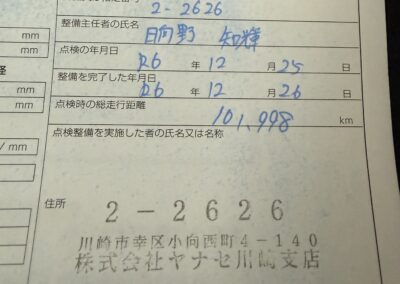 2-2626
整備主任者の氏名
日向野 知輝
点検の年月日
R6 年 12 月 25 日
整備を完了した年月日
R6 年 12 月 26 日
点検時の総走行距離
101,998 km
点検整備を実施した者の氏名又は名称
mm
mm
mm
/ mm
住所
2-2626
川崎市幸区小向西町4-140
株式会社ヤナセ川崎支店